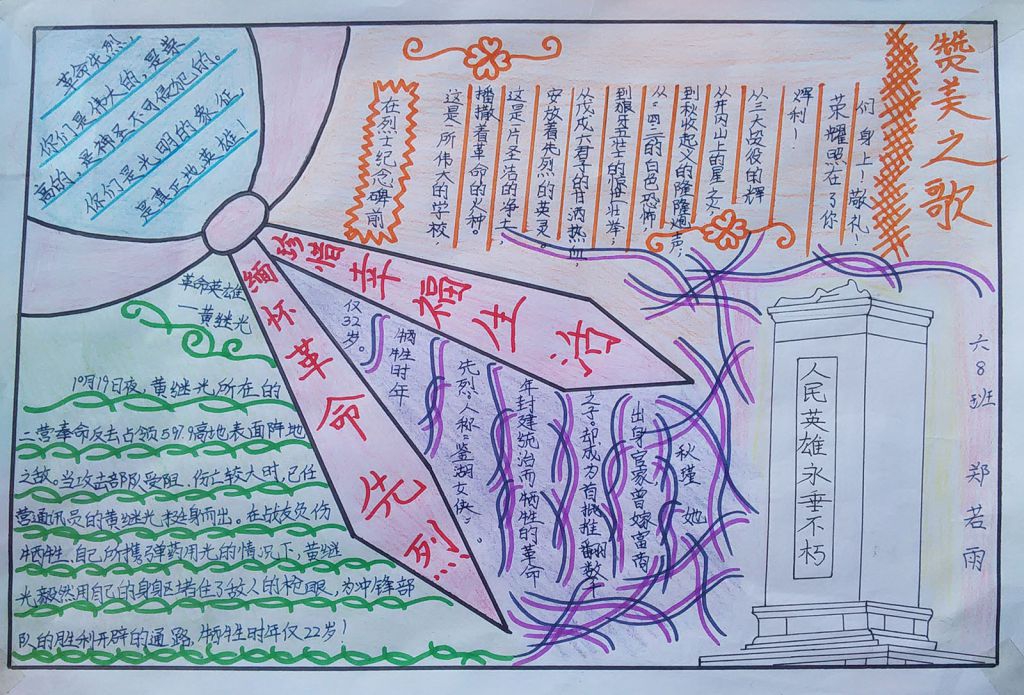 赞美之歌
革命先烈,
你们是伟大的,是崇
高的,是神圣不可侵犯的。
你们是光明的象征
是真正地英雄!
在烈士纪念碑前
这是一所伟大的学校,
播撒着革命的火种
这是一片圣洁的净土,
安放着先烈的英灵。
从戊戌六君子的甘洒热血,
到狼牙五壮士的慷慨壮举,
从四·一二的白色恐怖
到秋收起义的隆隆炮声,
从井冈山上的星星之火
从三大战役的辉
辉利!
荣耀照在了你
们身上!敬礼!
珍惜幸福生活
缅怀革命先烈!
革命英雄
—黄继光
10月19日夜,黄继光所在的
二营奉命反击占领597.9高地表面阵地
之敌。当攻击部队受阻,伤亡较大时,已任
营通讯员的黄继光,挺身而出。在战友负伤
牺牲,自己所携弹药用光的情况下,黄继
光毅然用自己的身躯堵住了敌人的枪眼,为冲锋部
队的胜利开辟的通路,牺牲时年仅22岁!
秋瑾 她
出身官家,曾嫁富商
之子。却成为首批推翻数千
年封建统治而牺牲的革命
先烈,人称:鉴湖女侠。
牺牲时年
仅32岁。
人民英雄永垂不朽
六8班 郑若雨